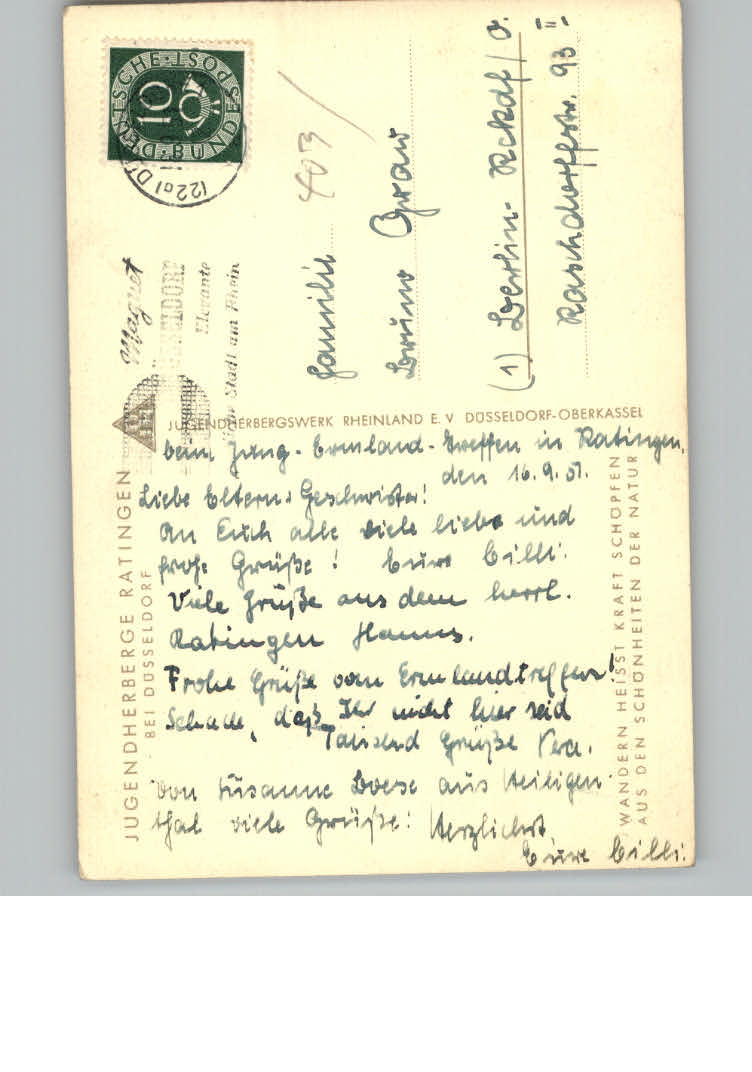 DEUTSCHE BUNDESPOST
10
(22a) D
Magnet
DÜSSELDORF
Elegante
Stadt am Rhein
403
Familie
Bruno Graw
(1) Berlin-Rckdf / O.
Raschdorffstr. 93 III
JUGENDHERBERGSWERK RHEINLAND E. V DÜSSELDORF-OBERKASSEL
JUGENDHERBERGE RATINGEN
BEI DÜSSELDORF
beim Jung-Ermland-Treffen in Ratingen,
den 16.9.51.
Liebe Eltern u. Geschwister!
An Euch alle viele liebe und
frohe Grüße! Eure Cilli.
Viele Grüße aus dem herrl.
Ratingen Hanns.
Frohe Grüße vom Ermlandtreffen!
Schade, daß Ihr nicht hier seid
Tausend Grüße Vera.
Von Susanne Boese aus Heiligen-
thal viele Grüße! Herzlichst
Eure Cilli.
WANDERN HEISST KRAFT SCHÖPFEN
AUS DEN SCHÖNHEITEN DER NATUR